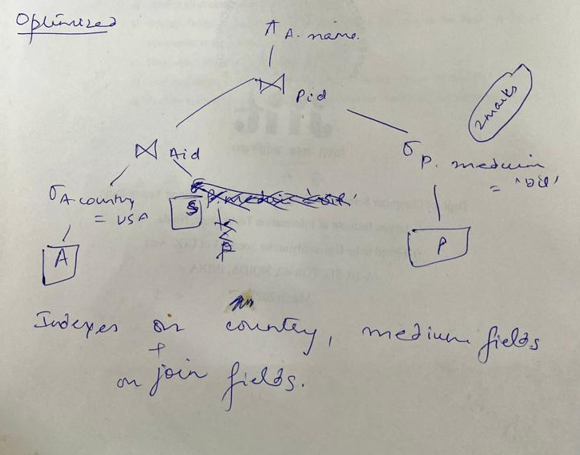 Optimized
π A. name
⋈ Pid
2 marks
⋈ Aid
σ P. medium = 'Oil'
σ A country = USA
S
A
P
Indexes on country, medium fields
+
on join fields.